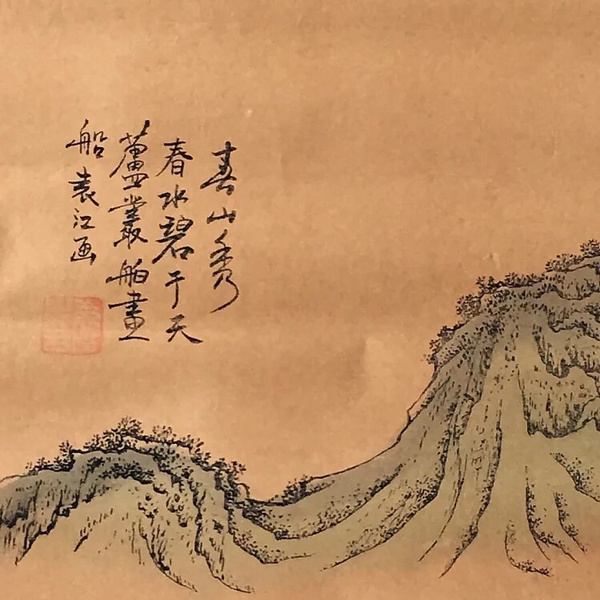 春山秀
春水碧于天
蘆叢舶畫
船袁江画